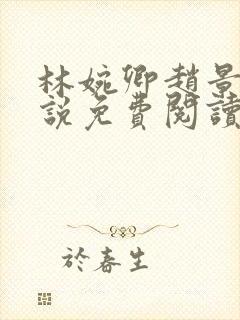 林婉卿趙景
說免費閱讀
於春生